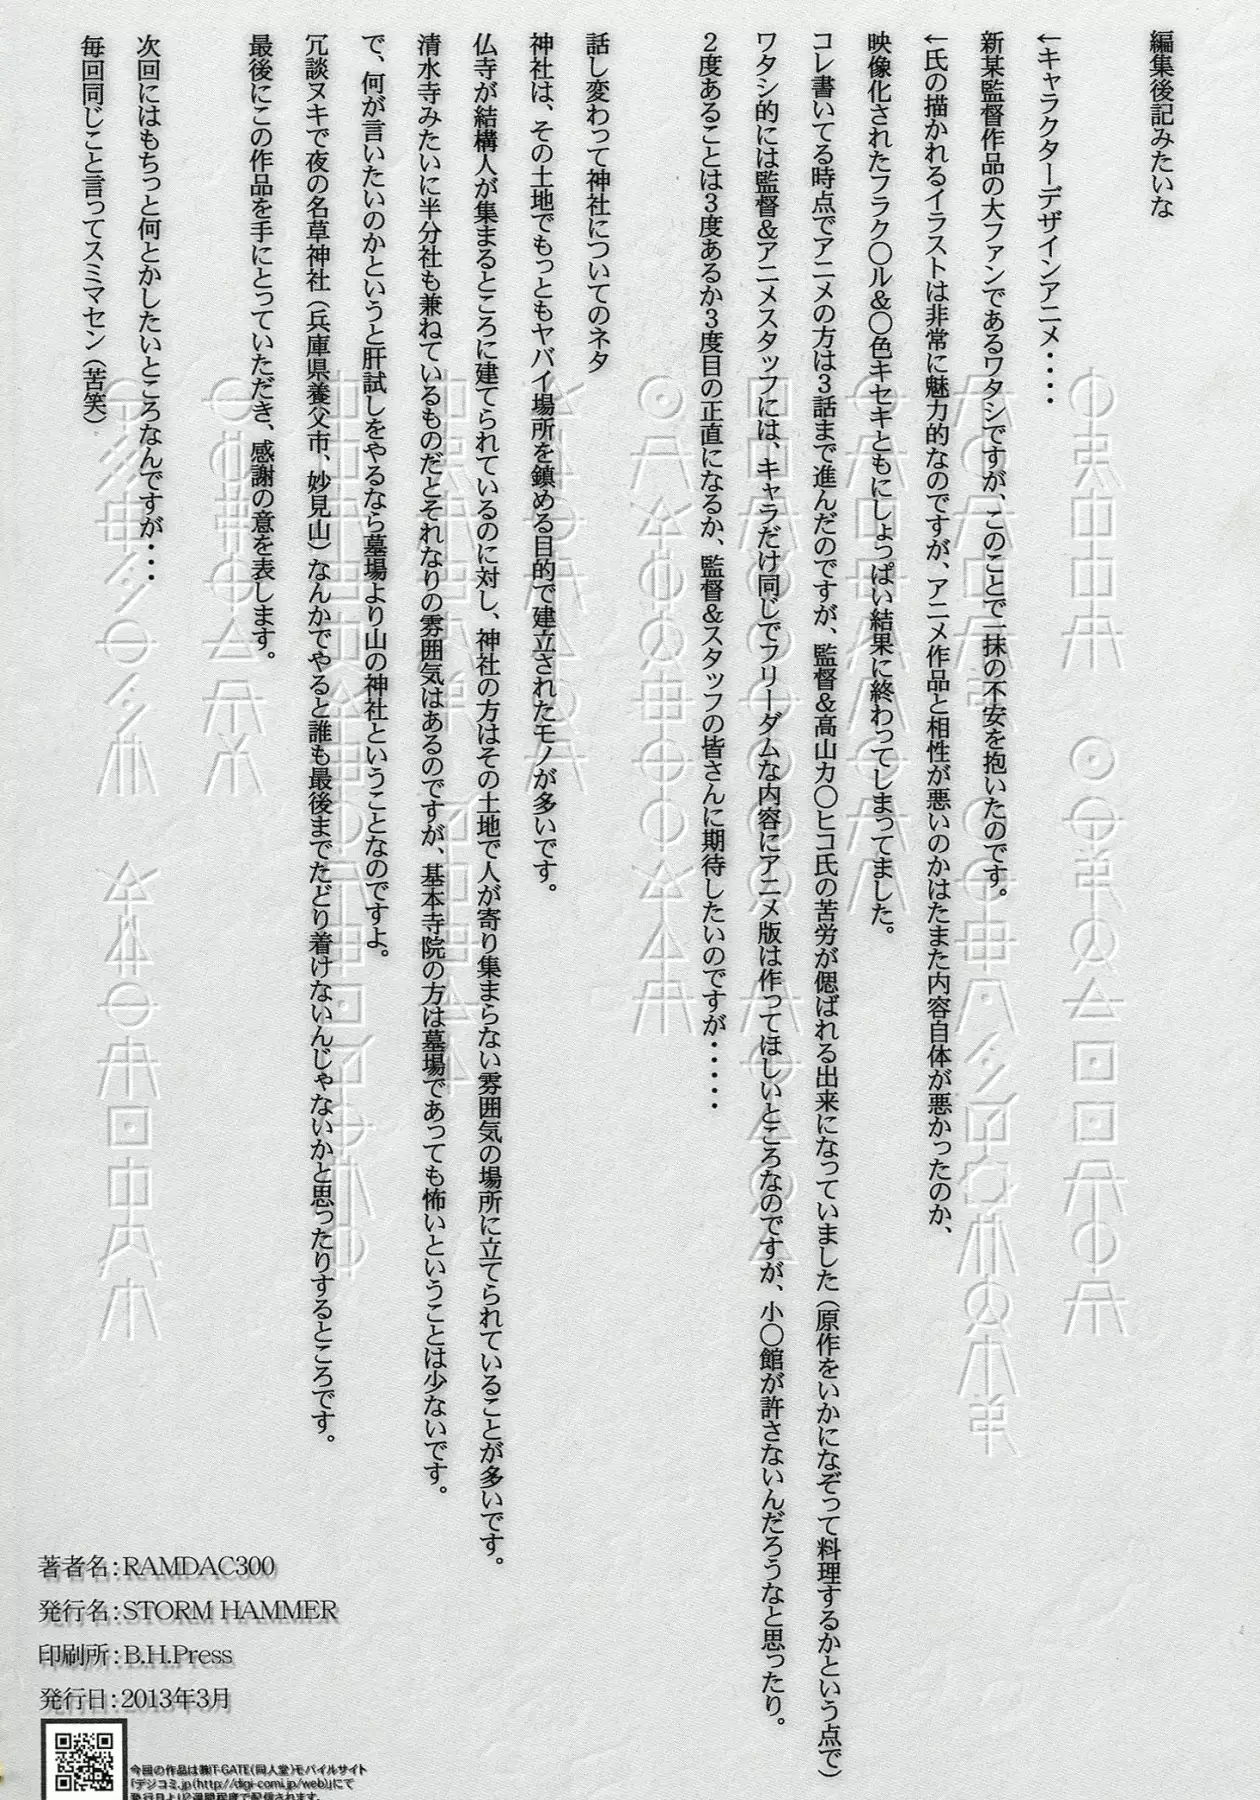 編集後記みたいな
←キャラクターデザインアニメ・・・・
新某監督作品の大ファンであるワタシですが、このことで一抹の不安を抱いたのです。
←氏の描かれるイラストは非常に魅力的なのですが、アニメ作品と相性が悪いのかはたまた内容自体が悪かったのか、
映像化されたフラク〇ル&〇色キセキともにしょっぱい結果に終わってしまってました。
コレ書いてる時点でアニメの方は3話まで進んだのですが、監督&高山カ〇ヒコ氏の苦労が偲ばれる出来になっていました（原作をいかになぞって料理するかという点で）
ワタシ的には監督&アニメスタッフには、キャラだけ同じでフリーダムな内容にアニメ版は作ってほしいところなのですが、小〇館が許さないんだろうなと思ったり。
2度あることは3度あるか3度目の正直になるか、監督&スタッフの皆さんに期待したいのですが・・・・・
話し変わって神社についてのネタ
神社は、その土地でもっともヤバイ場所を鎮める目的で建立されたモノが多いです。
仏寺が結構人が集まるところに建てられているのに対し、神社の方はその土地で人が寄り集まらない雰囲気の場所に立てられていることが多いです。
清水寺みたいに半分社も兼ねているものだとそれなりの雰囲気はあるのですが、基本寺院の方は墓場であっても怖いということは少ないです。
で、何が言いたいのかというと肝試しをやるなら墓場より山の神社ということなのですよ。
冗談ヌキで夜の名草神社（兵庫県養父市、妙見山）なんかでやると誰も最後までたどり着けないんじゃないかと思ったりするところです。
最後にこの作品を手にとっていただき、感謝の意を表します。
次回にはもちっと何とかしたいところなんですが・・・
毎回同じこと言ってスミマセン（苦笑）
著者名：RAMDAC300
発行名：STORM HAMMER
印刷所：B.H.Press
発行日：2013年3月
今回の作品は㈱T-GATE(同人堂)モバイルサイト
「デジコミ.jp(http://digi-comi.jp/web)」にて
発行日より2週間程度で配信されます。